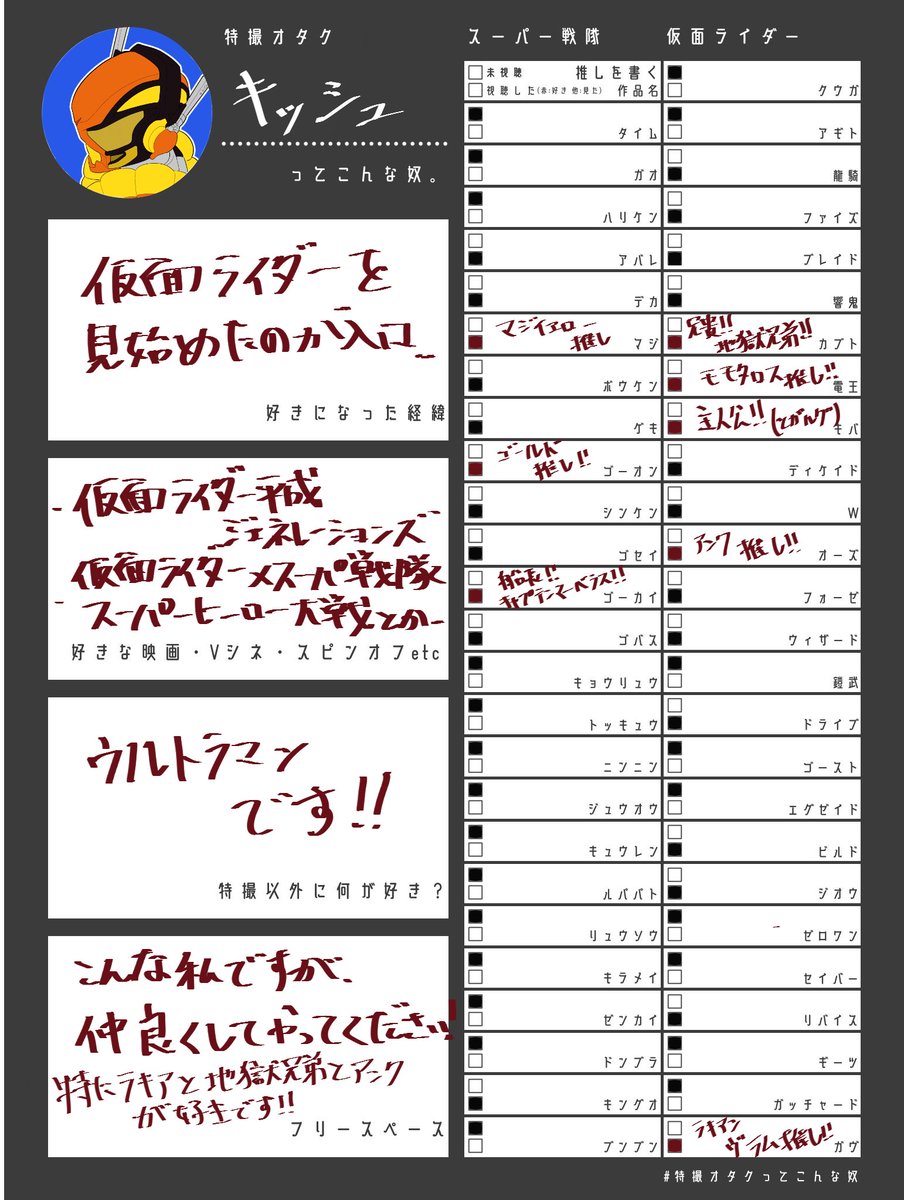 特撮オタク
キッシュ
ってこんな奴。
仮面ライダーを
見始めたのが入口
好きになった経緯
仮面ライダー平成
ジェネレーションズ
仮面ライダー×スーパー戦隊
スーパーヒーロー大戦とか
好きな映画・Vシネ・スピンオフetc
ウルトラマン
です!!
特撮以外に何が好き?
こんな私ですが、
仲良くしてやってください!
特にラキアと地獄兄弟とアンク
が好きです!!
フリースペース
スーパー戦隊
未視聴 推しを書く
視聴した(赤:好き 他:見た) 作品名
タイム
ガオ
ハリケン
アバレ
デカ
マジイエロー
推し マジ
ボウケン
ゲキ
ゴールド
推し!! ゴーオン
シンケン
ゴセイ
船長!!
キャプテンマーベラス!! ゴーカイ
ゴバス
キョウリュウ
トッキュウ
ニンニン
ジュウオウ
キュウレン
ルパパト
リュウソウ
キラメイ
ゼンカイ
ドンブラ
キングオ
ブンブン
仮面ライダー
クウガ
アギト
龍騎
ファイズ
ブレイド
響鬼
兄貴!!
地獄兄弟!! カブト
モモタロス推し!! 電王
主人公!! (とガルル) キバ
ディケイド
W
アンク推し!! オーズ
フォーゼ
ウィザード
鎧武
ドライブ
ゴースト
エグゼイド
ビルド
ジオウ
ゼロワン
セイバー
リバイス
ギーツ
ガッチャード
ラキアン
ヴラム推し!! ガヴ
#特撮オタクってこんな奴